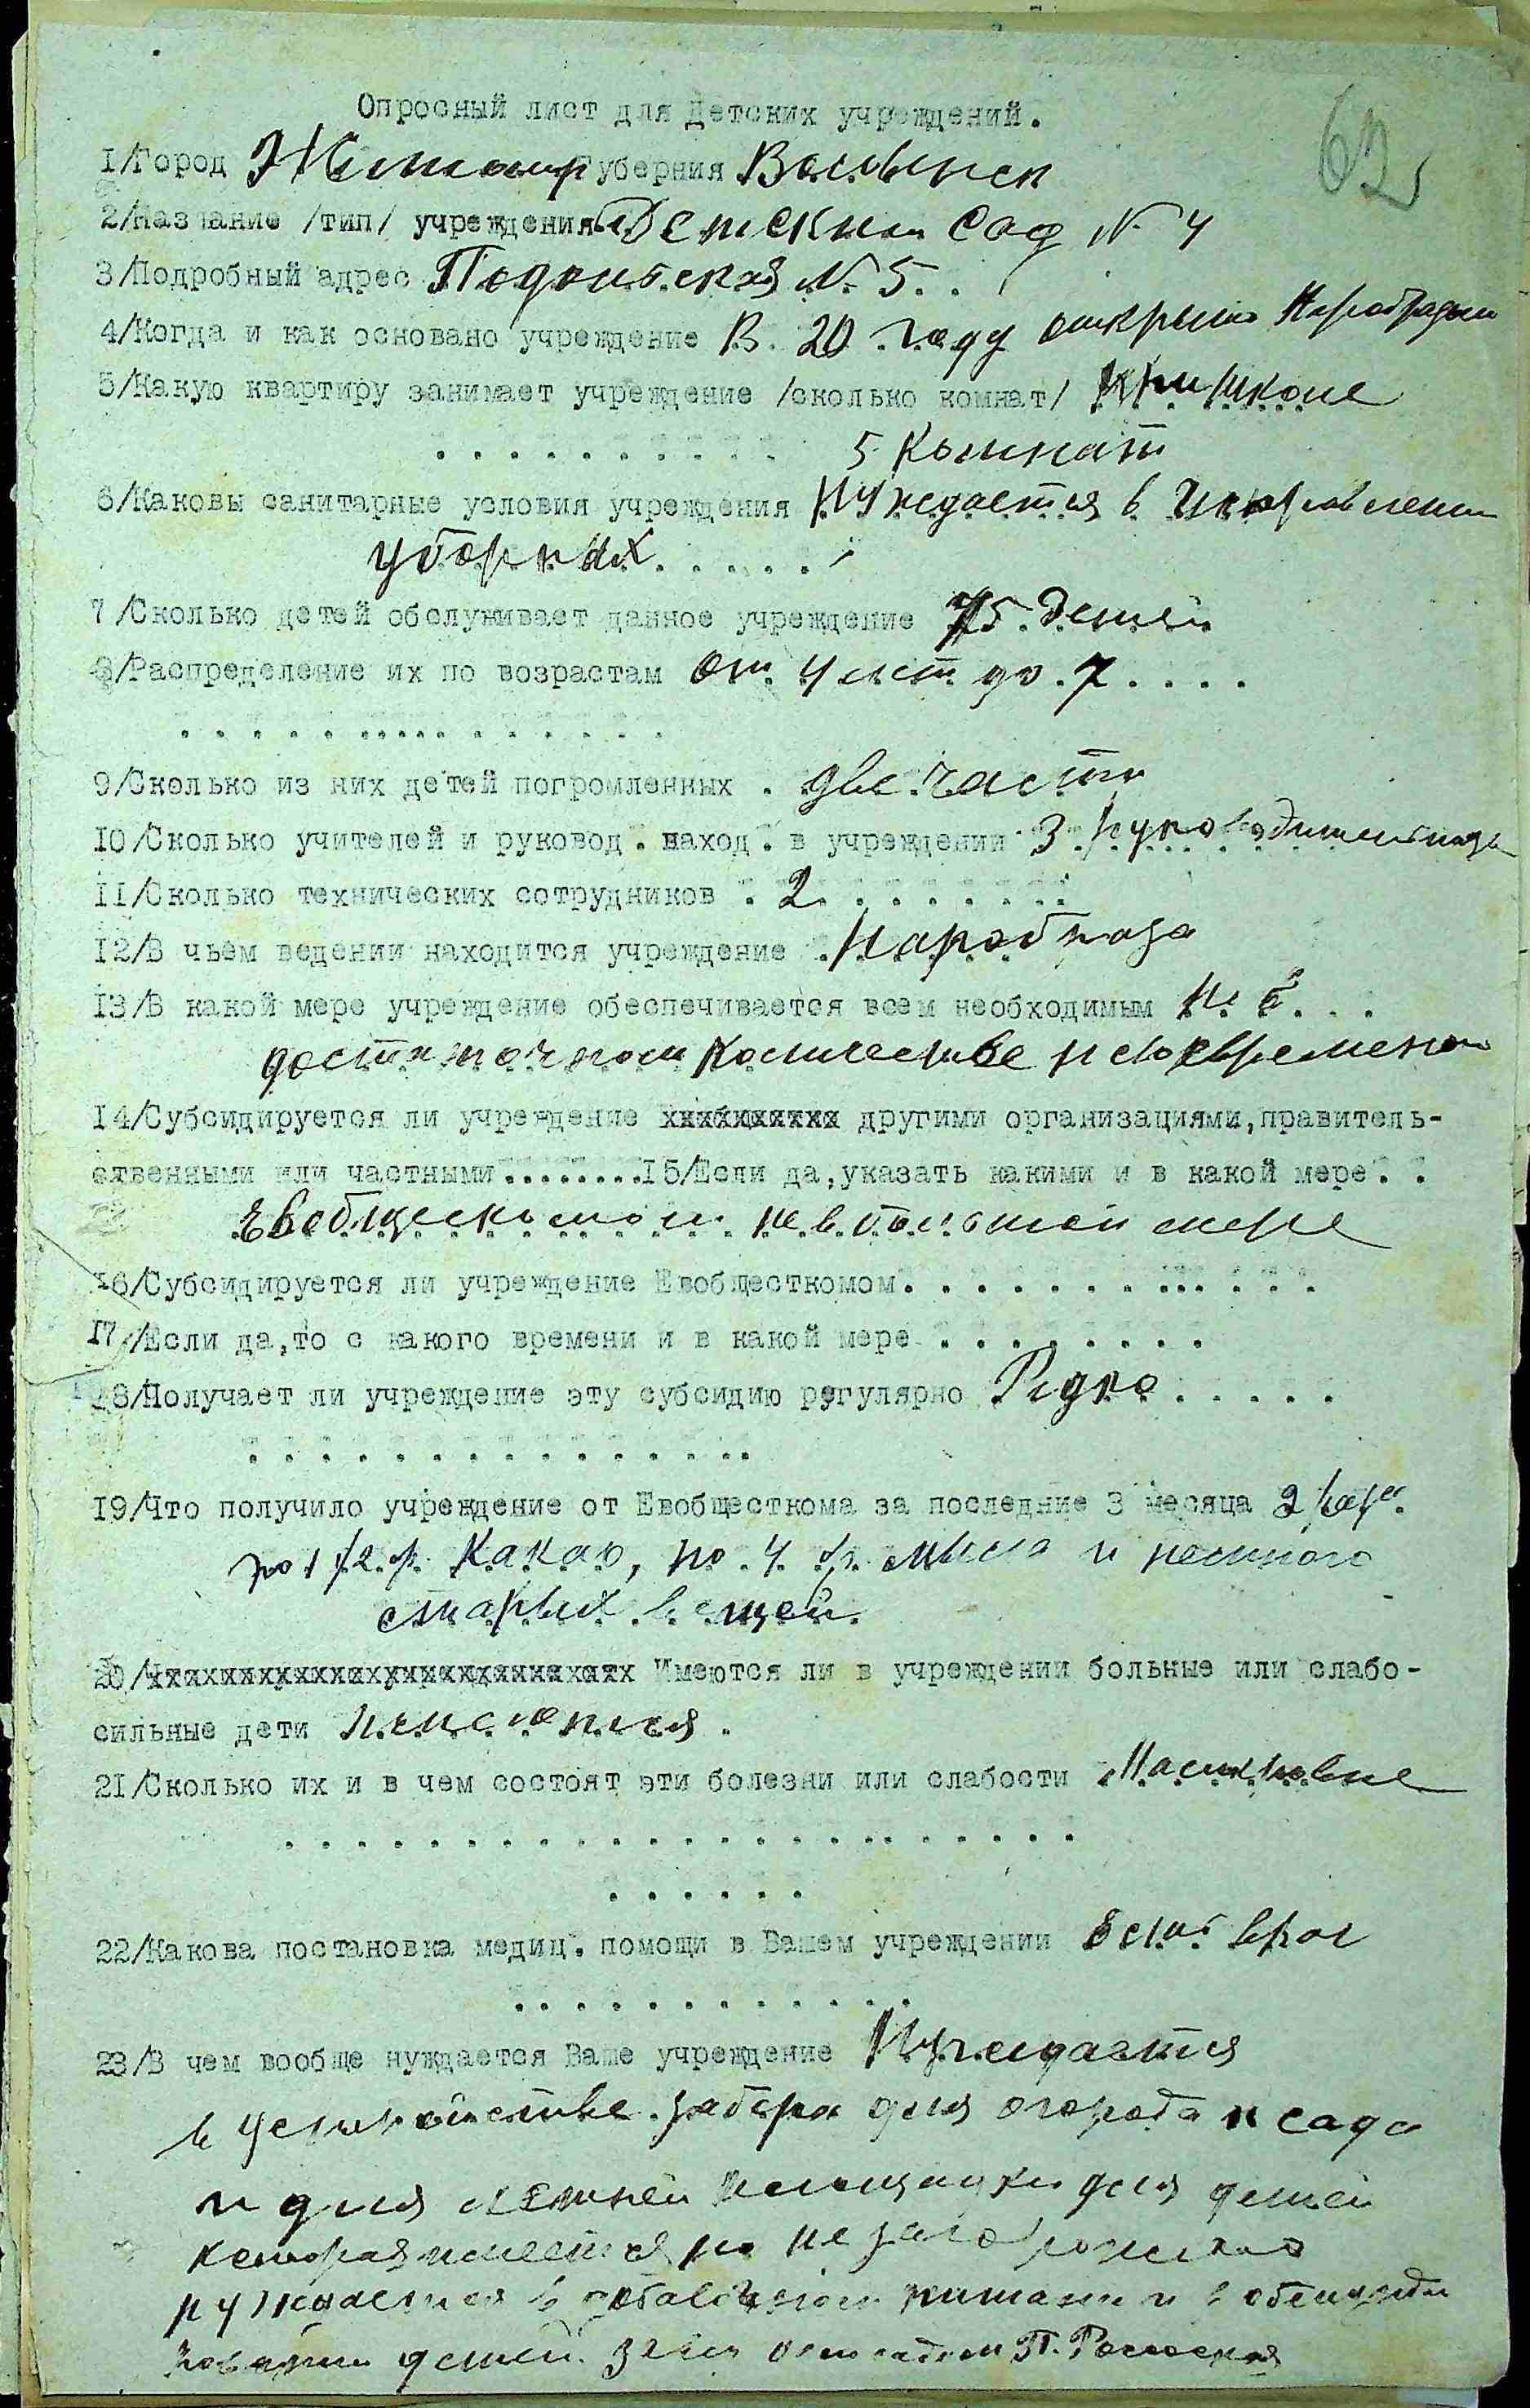 62
Опросный лист для Детских учреждений.
1/Город Житомир Губерния Волынск
2/Название /тип/ учреждения Детский Сад № 4
3/Подробный адрес Подольская № 5. .
4/Когда и как основано учреждение В 20 году открыто Наробразом
5/Какую квартиру занимает учреждение /сколько комнат/ При школе
. . . . . . . . . . 5 комнат
6/Каковы санитарные условия учреждения Нуждается в исправлении
уборных . . . . .
7/Сколько детей обслуживает данное учреждение 75 детей
8/Распределение их по возрастам От 4 лет до 7 . . . .
9/Сколько из них детей погромленных . две части
10/Сколько учителей и руковод. наход. в учреждении 3 руководительницы
11/Сколько технических сотрудников . 2 . . . . . . .
12/В чьем ведении находится учреждение Наробраза
13/В какой мере учреждение обеспечивается всем необходимым Не в . . .
достаточном количестве и своевременно
14/Субсидируется ли учреждение другими организациями,правитель-
ственными или частными........15/Если да,указать какими и в какой мере. .
Евобщескомом не в большой мере
16/Субсидируется ли учреждение Евобщесткомом. . . . . . . . ... . . .
17/Если да,то с какого времени и в какой мере . . . . . . . .
18/Получает ли учреждение эту субсидию регулярно Редко . . . . .
19/Что получило учреждение от Евобщесткома за последние 3 месяца 2 раза
по 1/2 ф. Какао, по 4 ф. мыла и немного
старых вещей.
20/ Имеются ли в учреждении больные или слабо-
сильные дети имеются .
21/Сколько их и в чем состоят эти болезни или слабости Малокровие
22/Какова постановка медиц. помощи в Вашем учреждении Есть врач
23/В чем вообще нуждается Ваше учреждение Нуждается
в устройстве забора для огорода и сада
и для летней площадки для детей
которая имеется но не загорожена
нуждается в добавочном питании и в
детей. Зав. П.